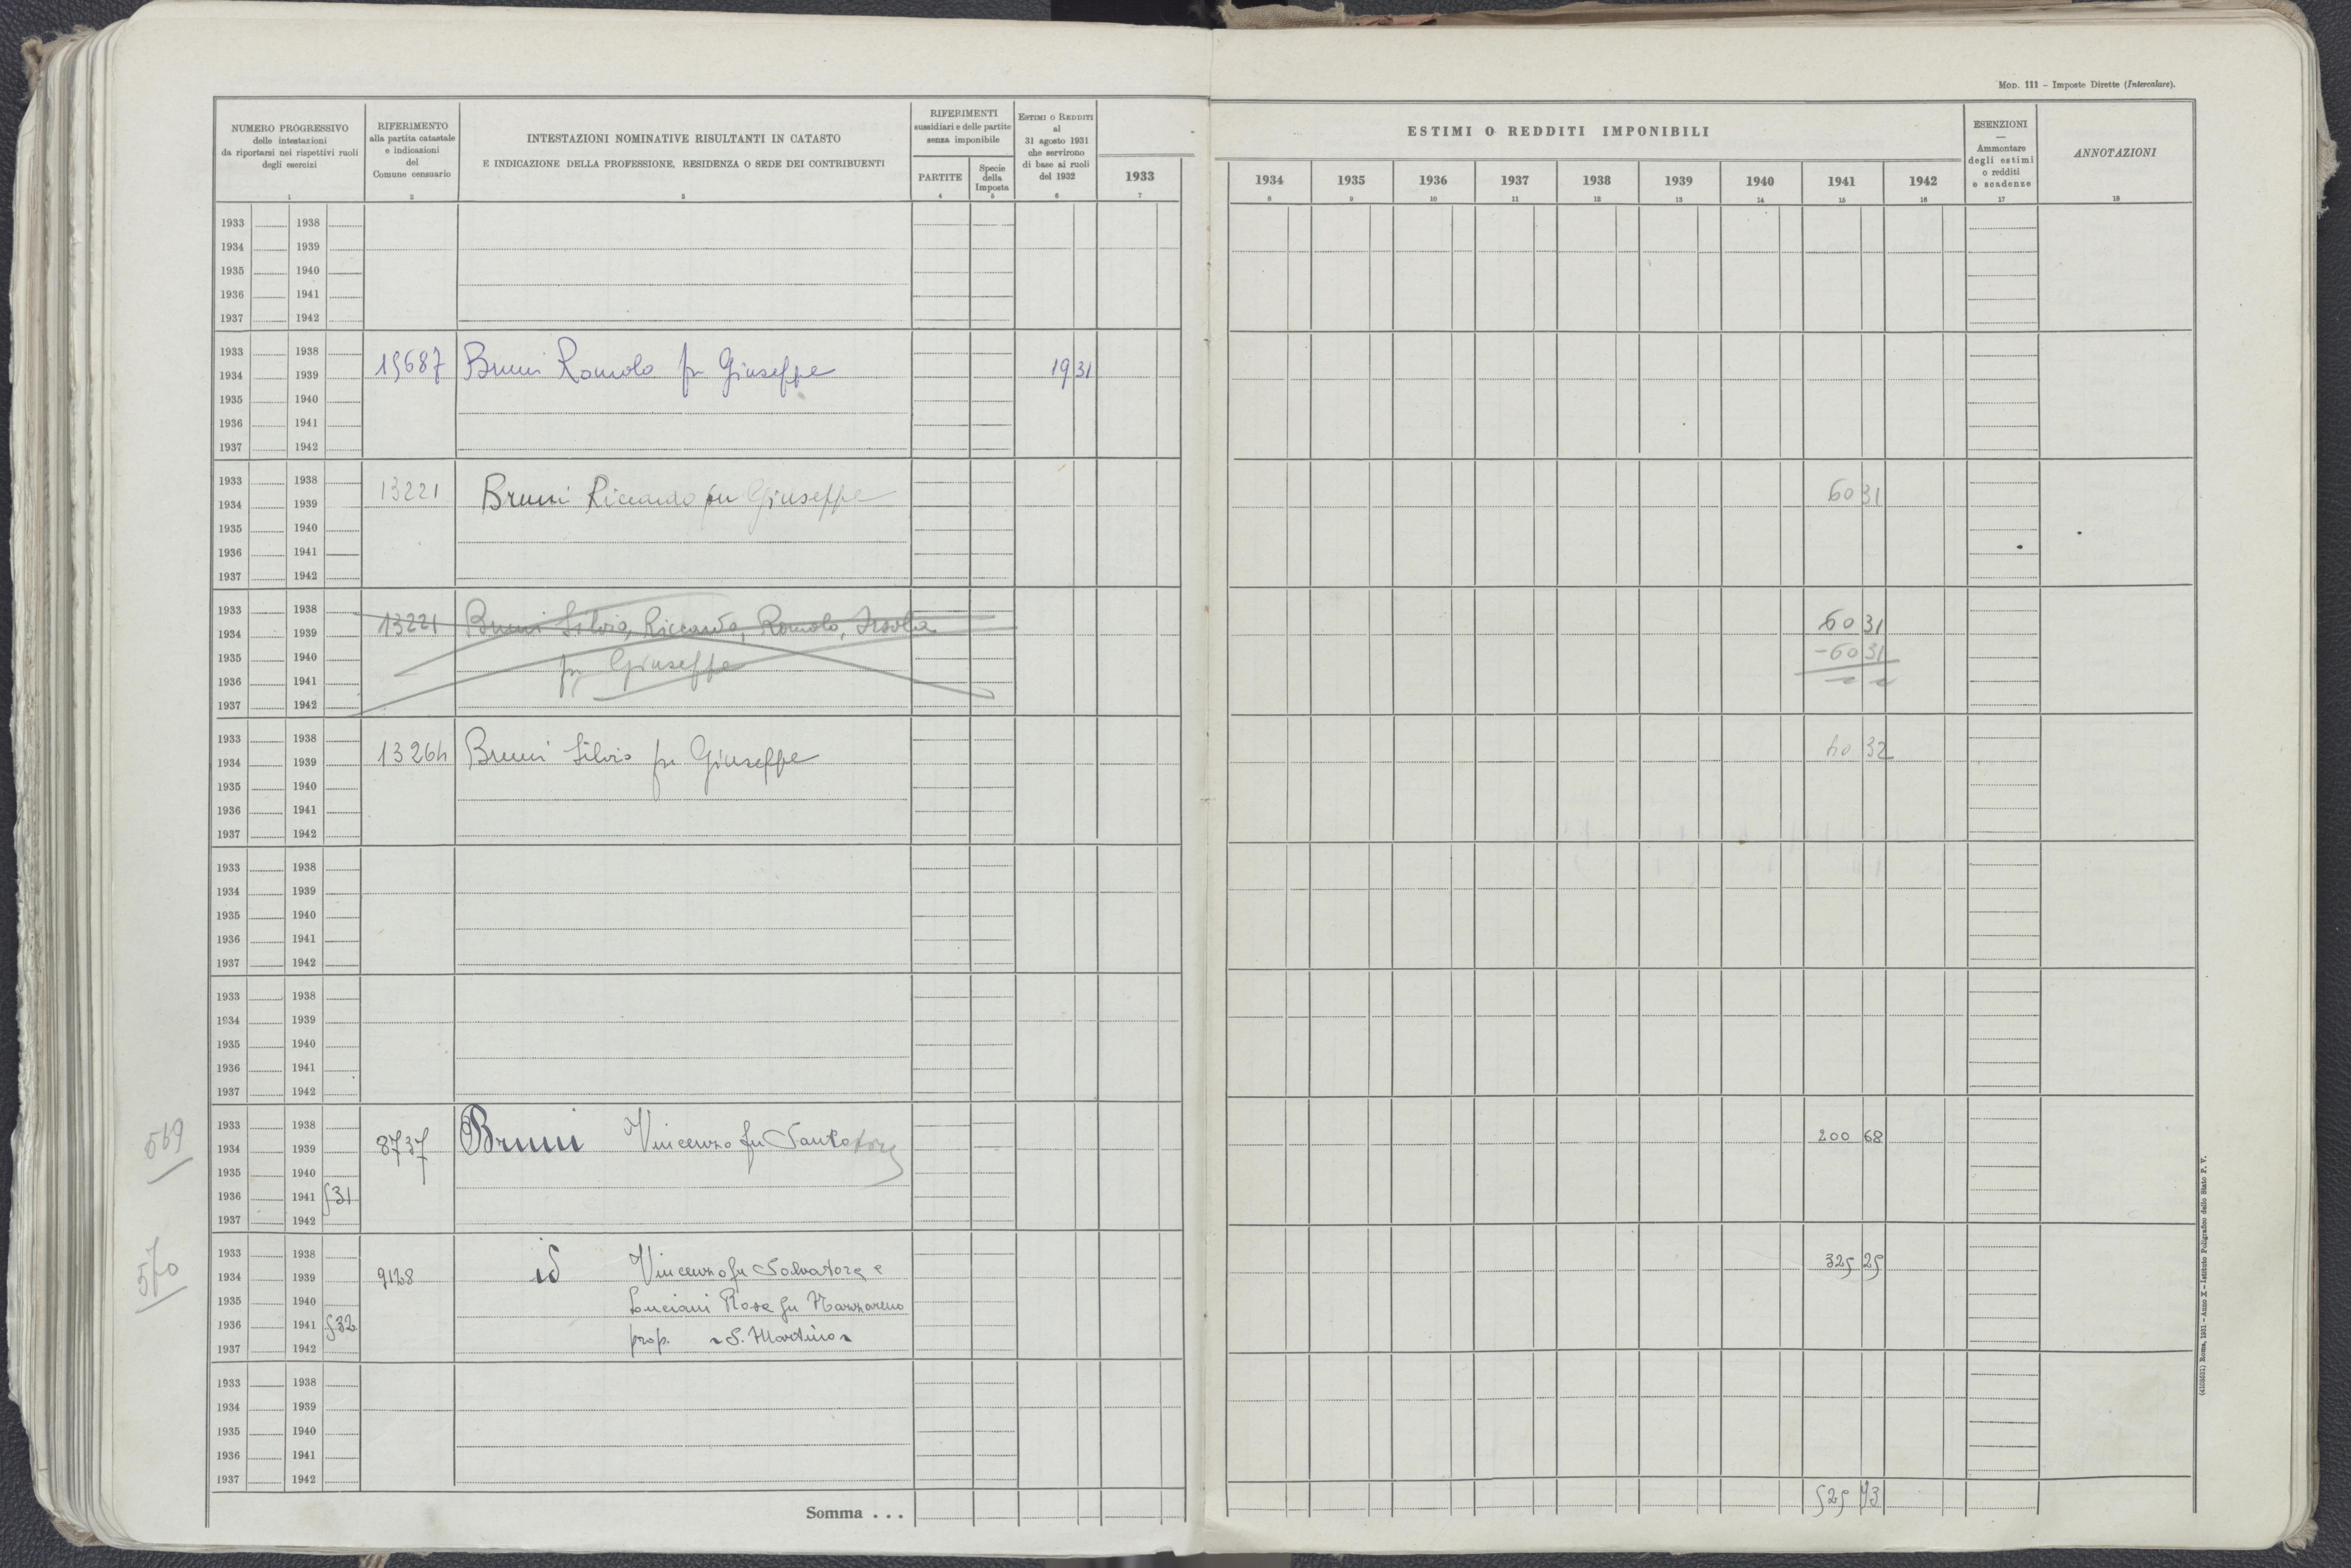 Mod. 111 - Imposte Dirette (Intercalare).
NUMERO PROGRESSIVO
delle intestazioni
da riportarsi nei rispettivi ruoli
degli esercizi
1
RIFERIMENTO
alla partita catastale
e indicazioni
del
Comune censuario
2
INTESTAZIONI NOMINATIVE RISULTANTI IN CATASTO
E INDICAZIONE DELLA PROFESSIONE, RESIDENZA O SEDE DEI CONTRIBUENTI
3
RIFERIMENTI
sussidiari e delle partite
senza imponibile
PARTITE
4
Specie
della
Imposta
5
Estimi o Redditi
al
31 agosto 1931
che servirono
di base ai ruoli
del 1932
6
1933
7
ESTIMI O REDDITI IMPONIBILI
1934 1935 1936 1937 1938 1939 1940 1941 1942
8 9 10 11 12 13 14 15 16
ESENZIONI
—
Ammontare
degli estimi
o redditi
e scadenze
17
ANNOTAZIONI
18
1933 1938
1934 1939
1935 1940
1936 1941
1937 1942
1933 1938
1934 1939 15687 Bruni Romolo fu Giuseppe 19 31
1935 1940
1936 1941
1937 1942
1933 1938
1934 1939 13221 Bruni Riccardo fu Giuseppe 60 31
1935 1940
1936 1941
1937 1942
1933 1938
1934 1939 13221 Bruni Silvio, Riccardo, Romolo, 60 31
1935 1940 fu Giuseppe - 60 31
1936 1941
1937 1942
1933 1938
1934 1939 13264 Bruni Silvio fu Giuseppe 40 32
1935 1940
1936 1941
1937 1942
1933 1938
1934 1939
1935 1940
1936 1941
1937 1942
1933 1938
1934 1939
1935 1940
1936 1941
1937 1942
569
1933 1938
1934 1939 8737 Bruni Vincenzo fu 200 68
1935 1940
1936 1941 531
1937 1942
570
1933 1938
1934 1939 9128 id Vincenzo fu Salvatore e 325 25
1935 1940 Luciani Rosa fu Nazzareno
1936 1941 532
1937 1942 prop. "S. Martino"
1933 1938
1934 1939
1935 1940
1936 1941
1937 1942
Somma . . . 525 93
(4103531) Roma, 1931 - Anno X - Istituto Poligrafico dello Stato P. V.